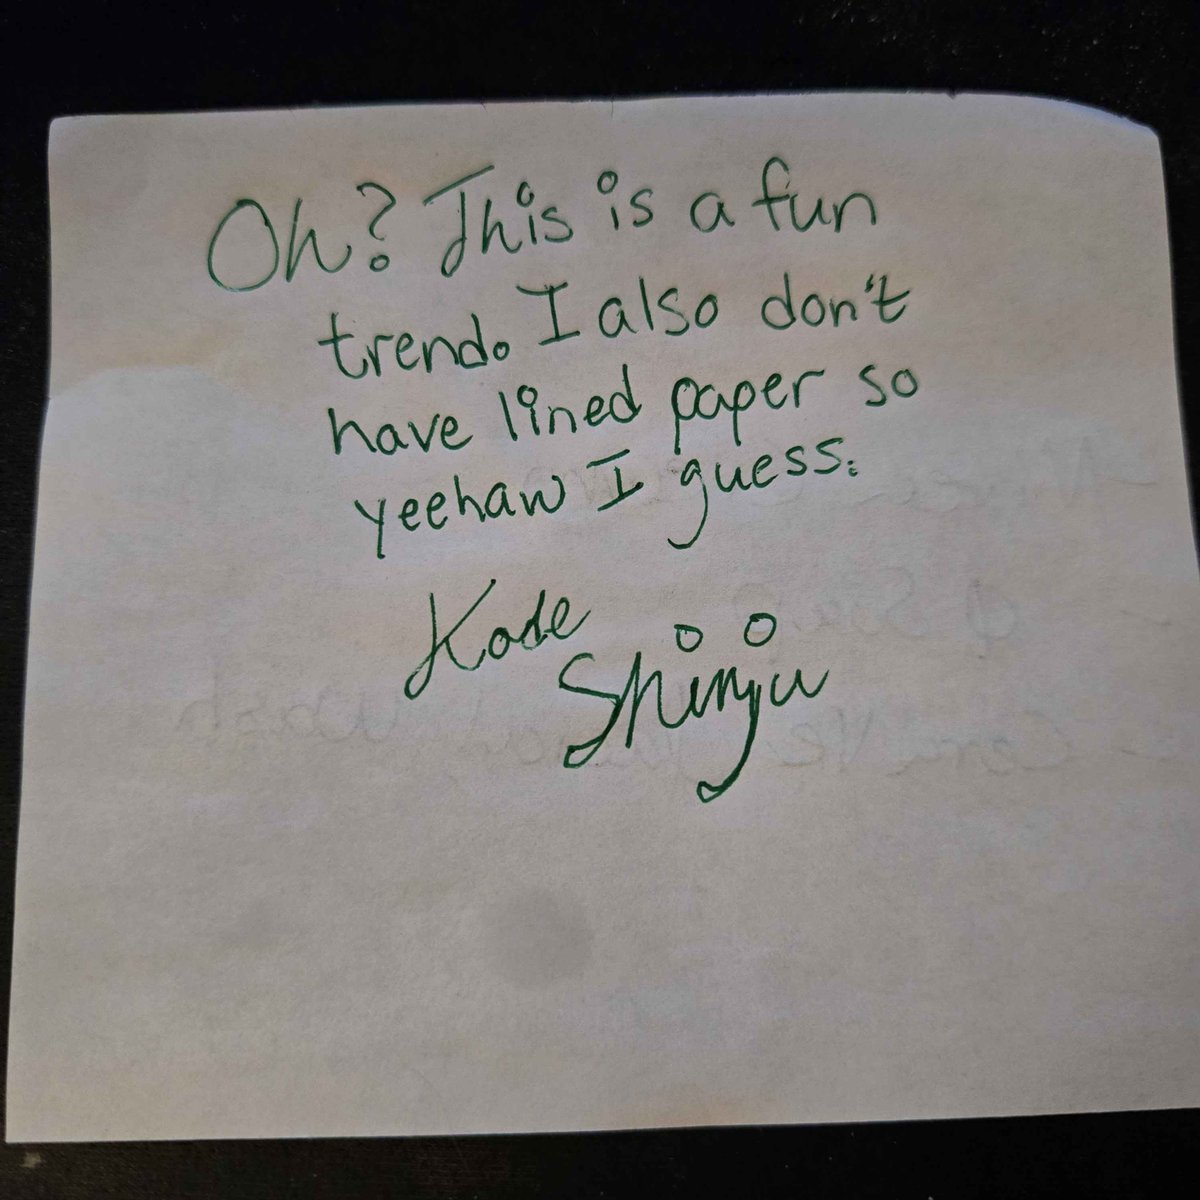 Oh? This is a fun
trend. I also don't
have lined paper so
yeehaw I guess.
Kade
Shinju